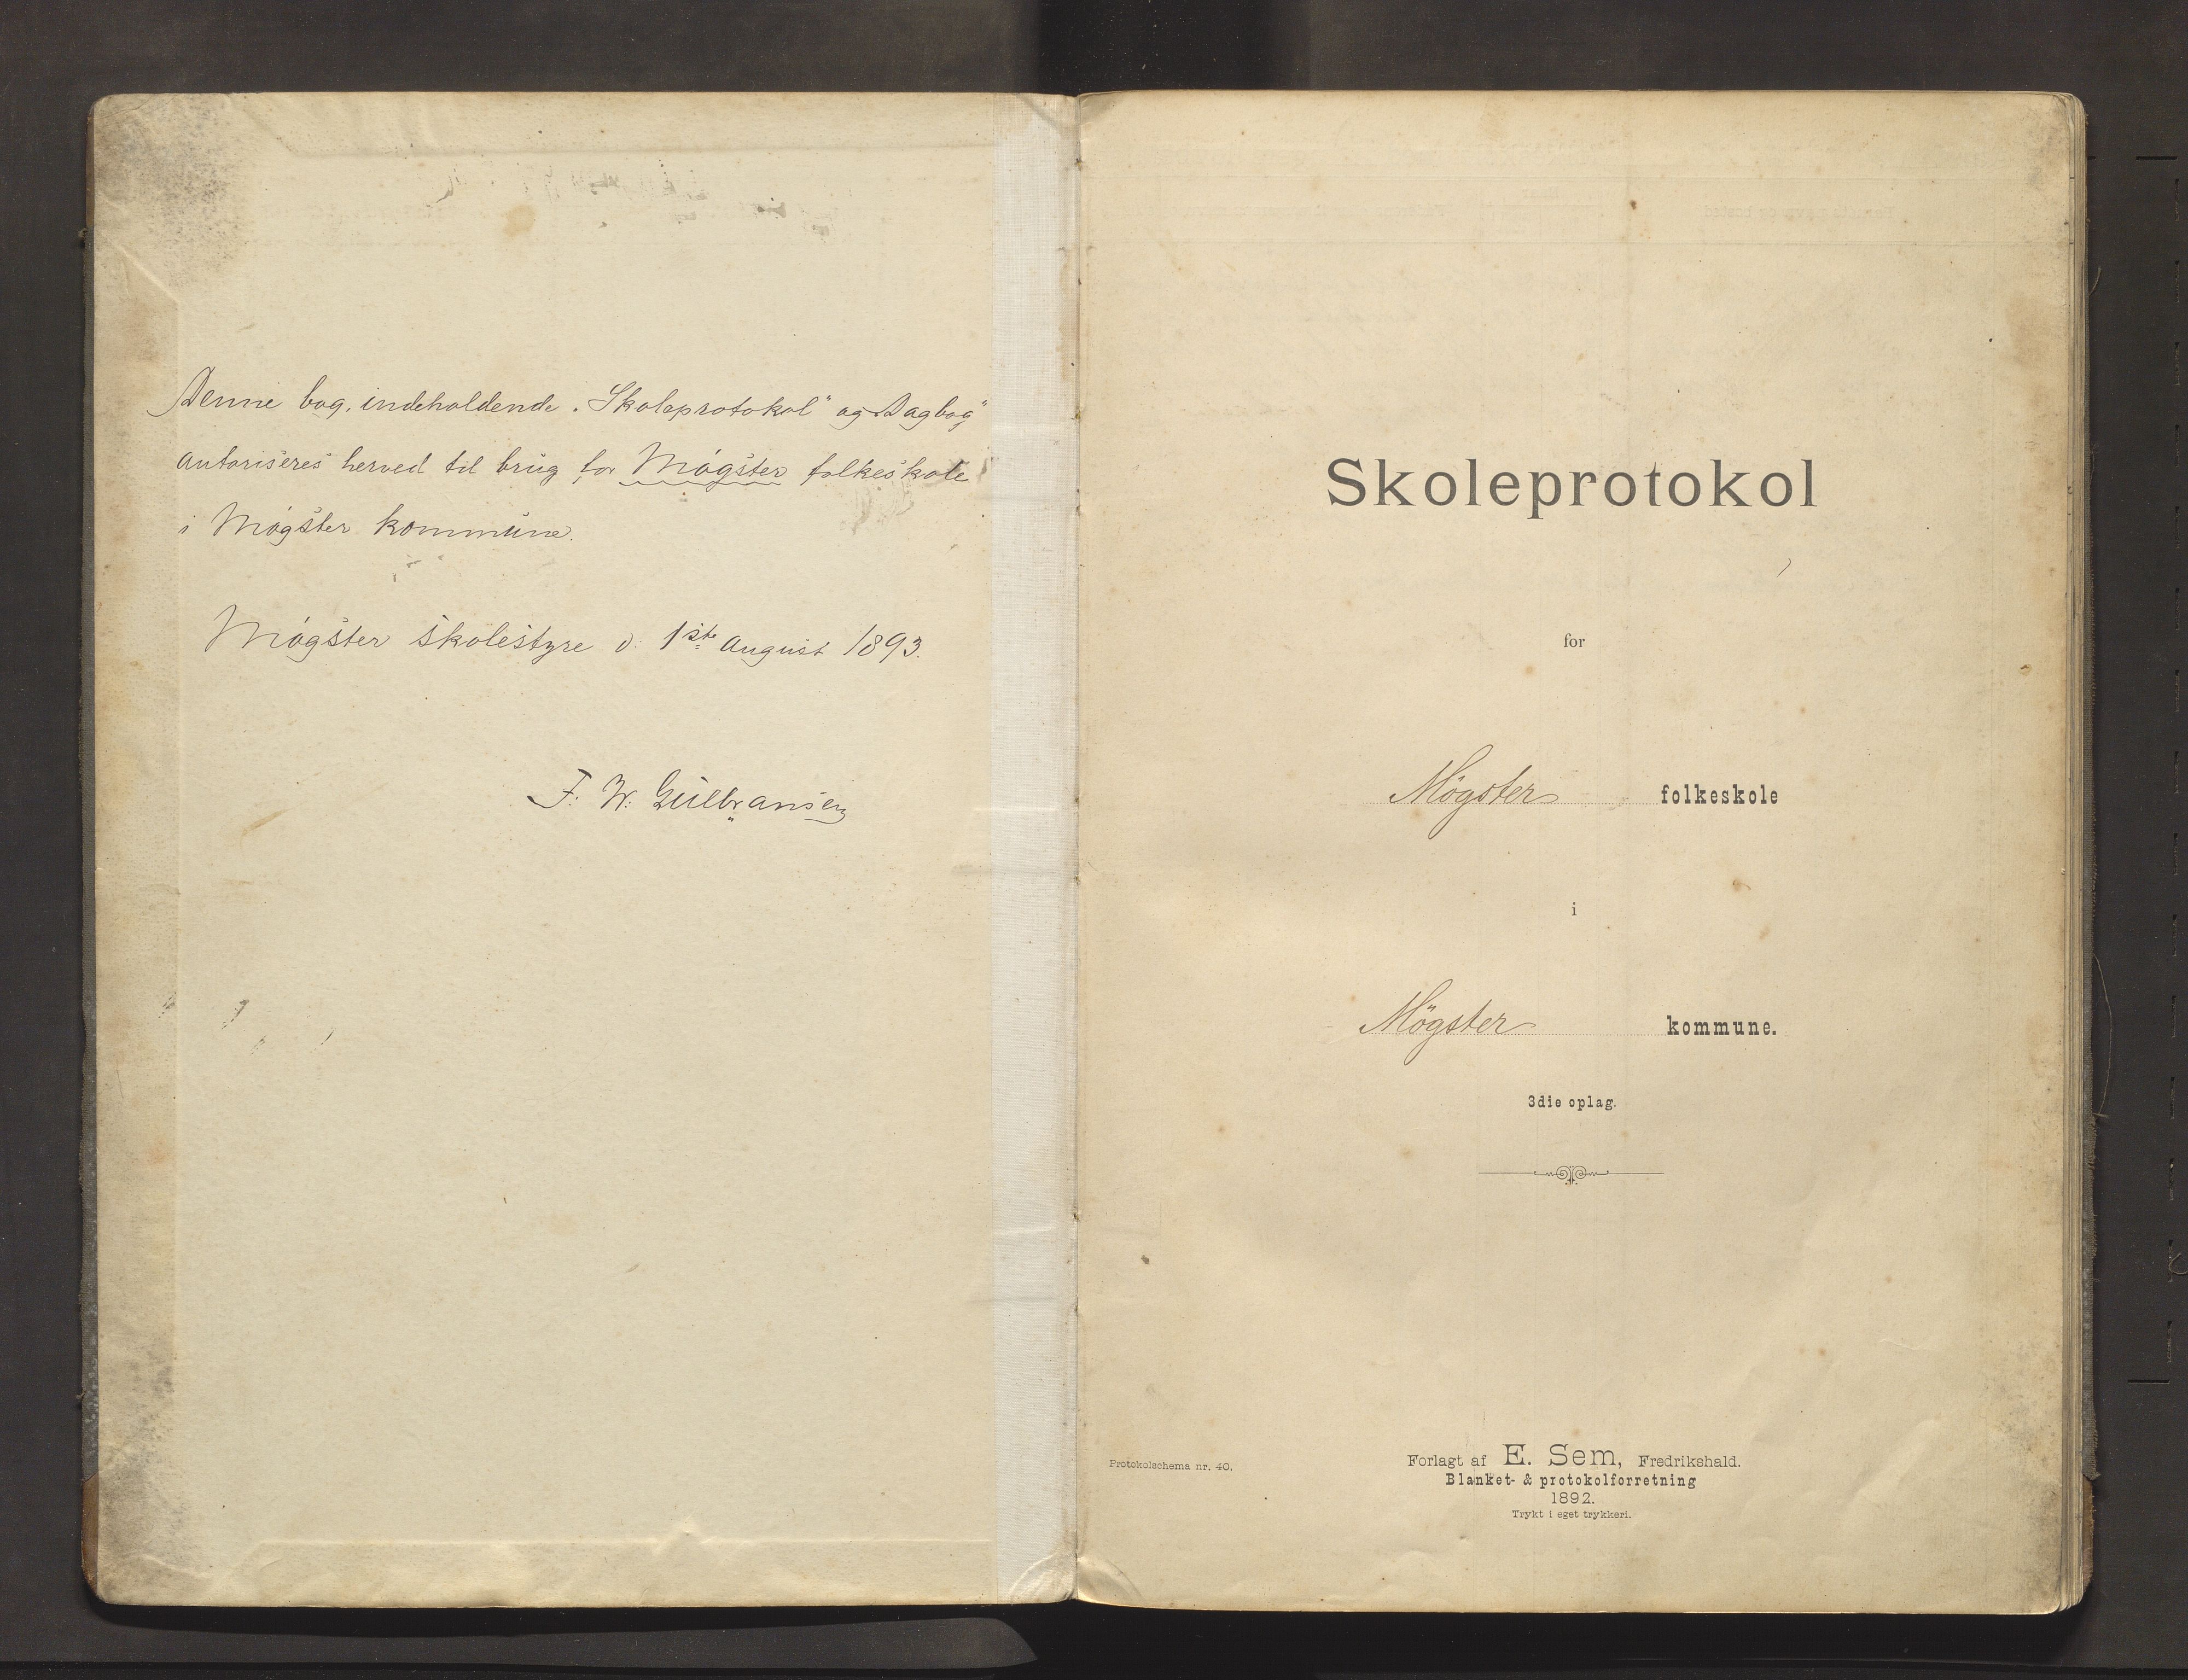 Denne bog, indeholdende „Skoleprotokol" og Dagbog"
autoriseres herved til brug for Møgster folkeskole
i Møgster kommune.
Møgster skolestyre d. 1ste august 1893.
F. W. Gulbransen
Skoleprotokol
for
Møgster folkeskole
i
Møgster kommune.
3die oplag.
Protokolschema nr. 40.
Forlagt af E. Sem, Fredrikshald.
Blanket- & protokolforretning
1892.
Trykt i eget trykkeri.